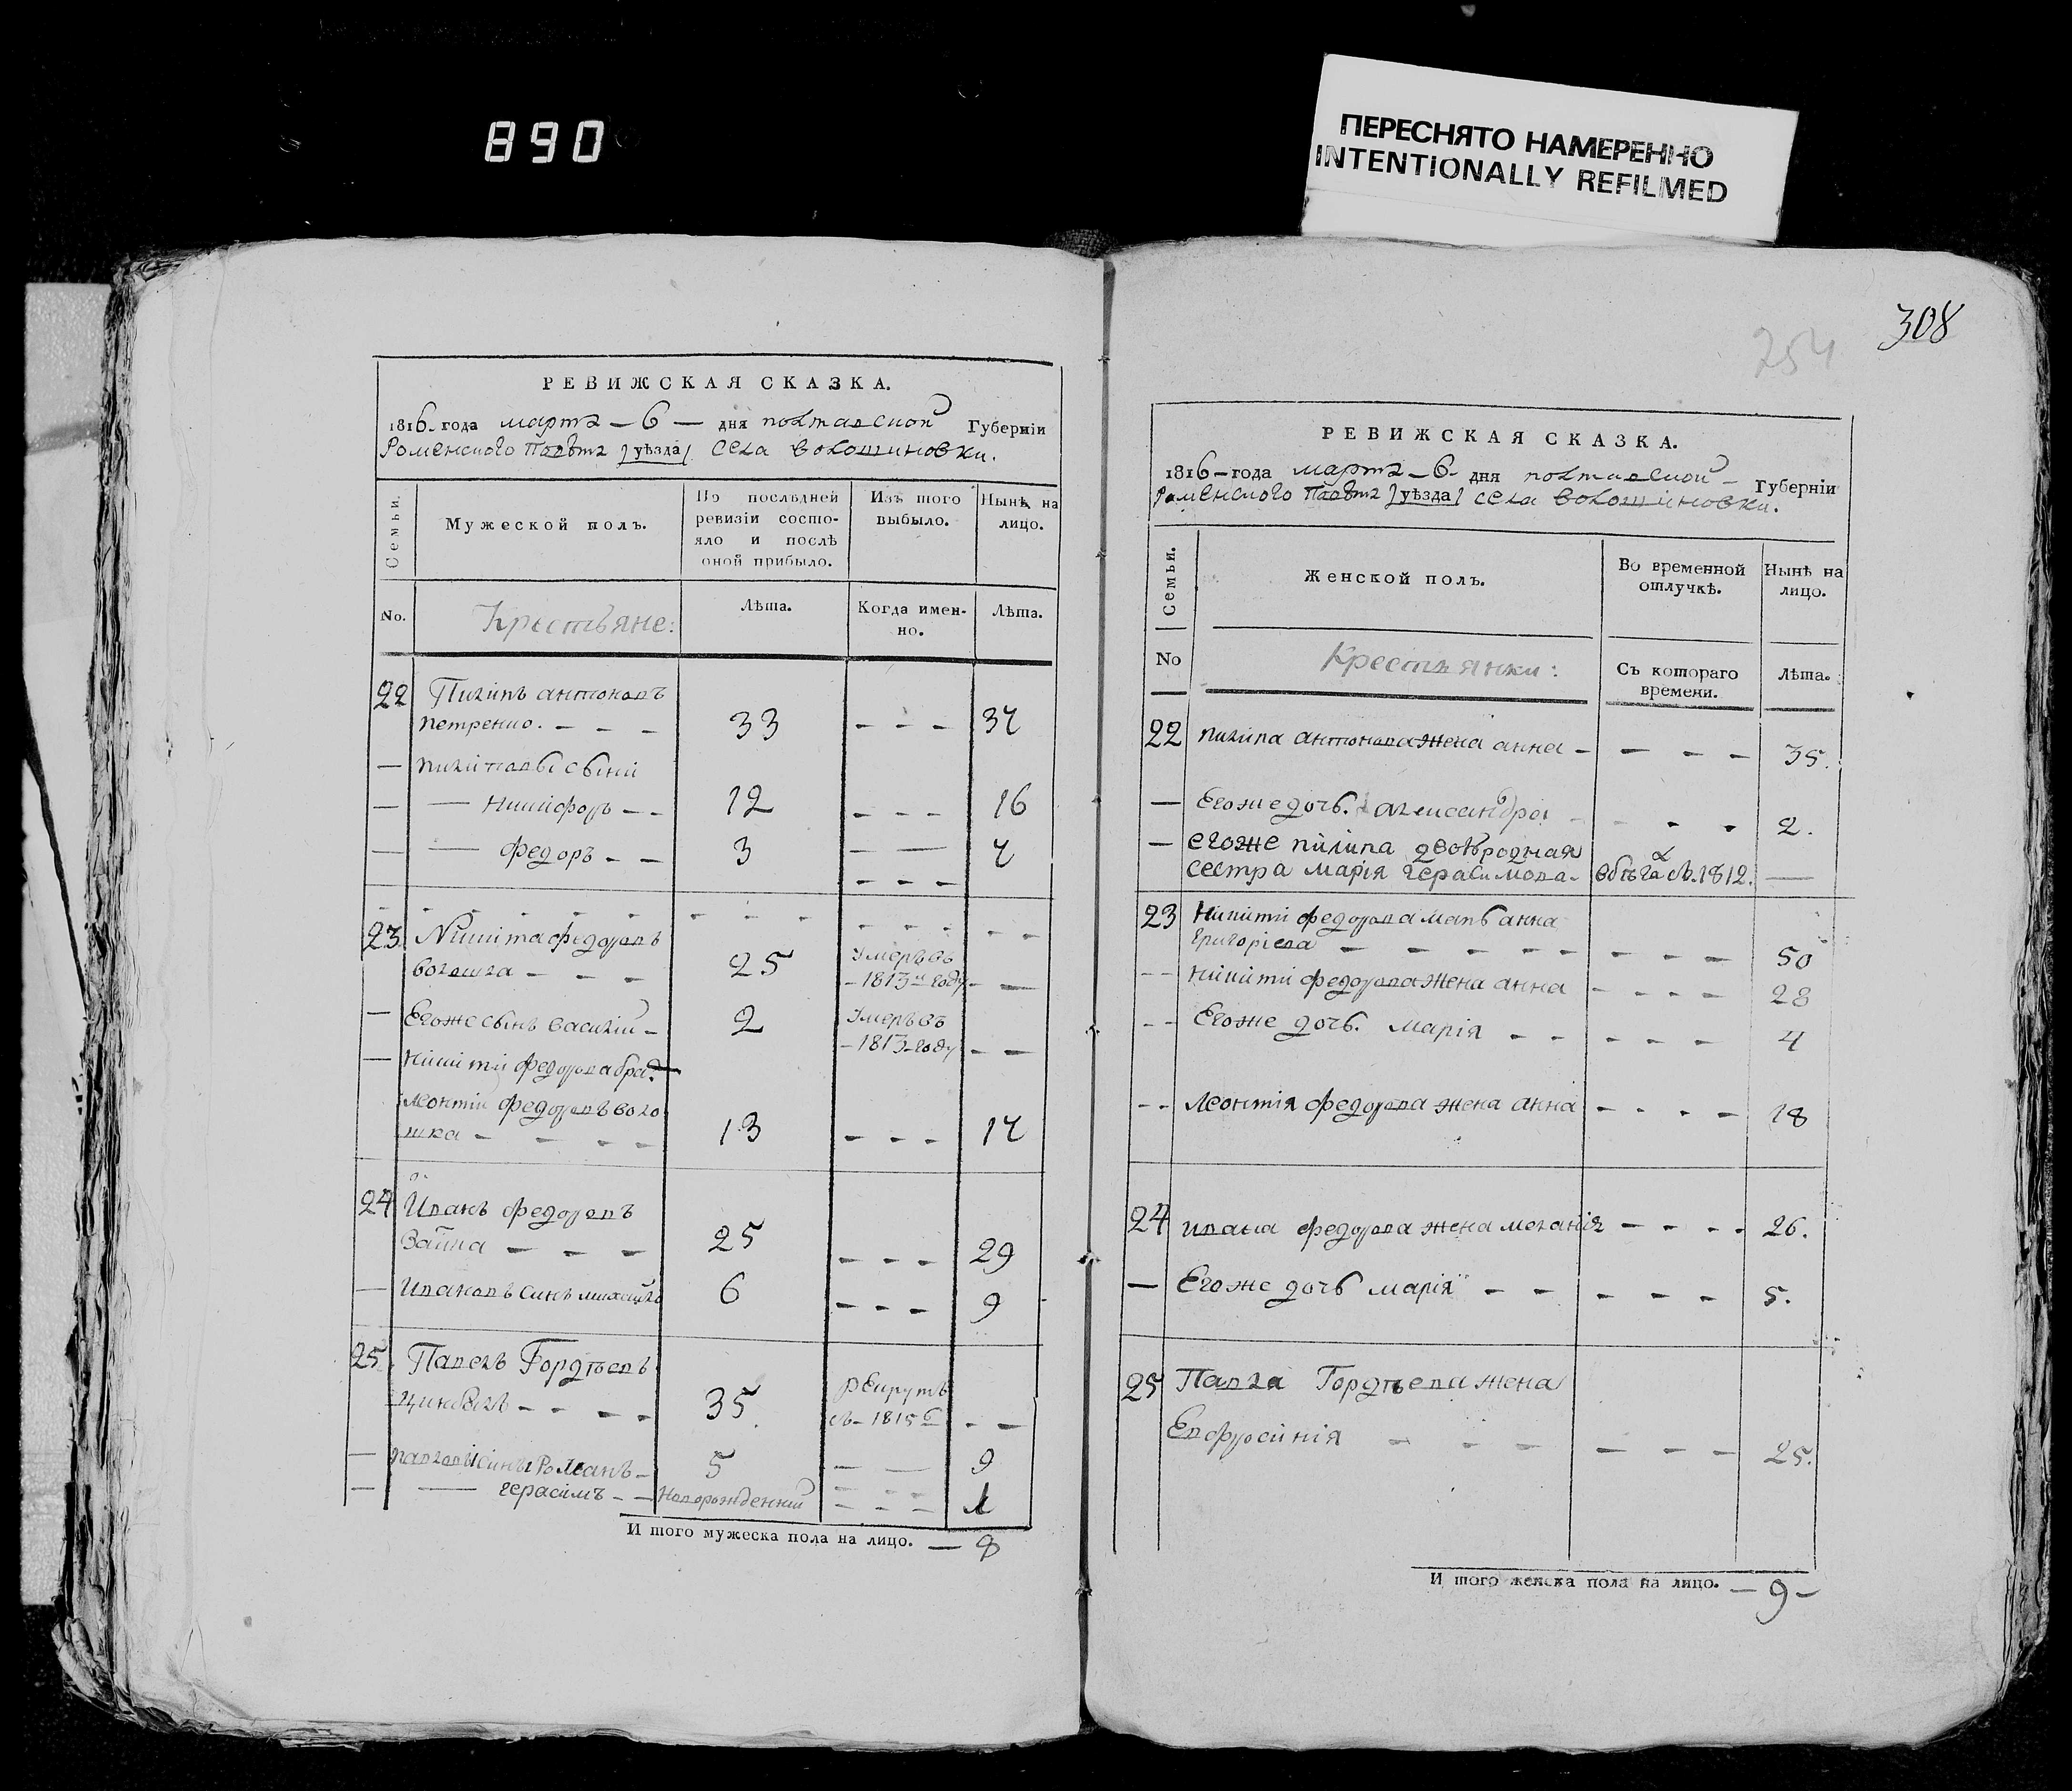 890
ПЕРЕСНЯТО НАМЕРЕННО
INTENTIONALLY REFILMED
308
254
РЕВИЖСКАЯ СКАЗКА.
1816 года марта – 6 – дня полтавской Губерніи
Роменского Повѣта уѣзда селa волошиновки.
Семьи.
Мужеской полъ.
По послѣдней ревизіи состояло и послѣ оной прибыло.
Изъ того выбыло.
Нынѣ на лицо.
No.
Крестьяне:
Лѣта.
Когда именно.
Лѣта.
22 Пилипъ антоновъ
петренко. – – – 33 – – – 37
— пилиповы сыны
— — никифоръ – – 12 – – – 16
— — федоръ – – 3 — — 7
23 Никита федоровъ Умеръ въ
волошка – – – 25 – 1813 году – –
— Егоже сынъ василій – 2 Умеръ въ
– 1813 году – –
— никиты федорова брат
леонтій федоровъ воло
шка – – – – 13 – – – 17
24 Иванъ федоровъ
Заика – – – 25 – – – 29
— Ивановъ синъ михайло 6 – – – 9
25 Павелъ Гордѣевъ рекрутъ
цинбалъ – – – – 35. въ – 1815 – –
— павловы сины Романъ – 5 — — 9
— — герасимъ – – новорожденній – – – 1
И того мужеска пола на лицо. — 8
РЕВИЖСКАЯ СКАЗКА.
1816 – года марта – 6 – дня полтавской – Губерніи
Роменского Повѣта уѣзда села волошиновки.
Семьи.
Женской полъ.
Во временной отлучкѣ.
Нынѣ на лицо.
No
Крестьянки:
Съ котораго времени.
Лѣта.
22 пилипа антонова жена анна – – – – 35.
— Егоже дочь. александра – – – 2.
— егоже пилипа двоѣродная
сестра марія герасимова – въ бѣга съ 1812. —
23 Никиты федорова мать анна
григоріева – – – – – – – – – 50
– – никиты федорова жена анна – – – – 28
– – Егоже дочь. марія – – – – – – 4
– – леонтія федорова жена анна – – – – 18
24 ивана федорова жена меланія – – – – 26.
— Егоже дочь марія – – – – – – 5.
25 Павла Гордѣева жена
Евфросинія – – – – – – – 25.
И того женска пола на лицо. – 9 –